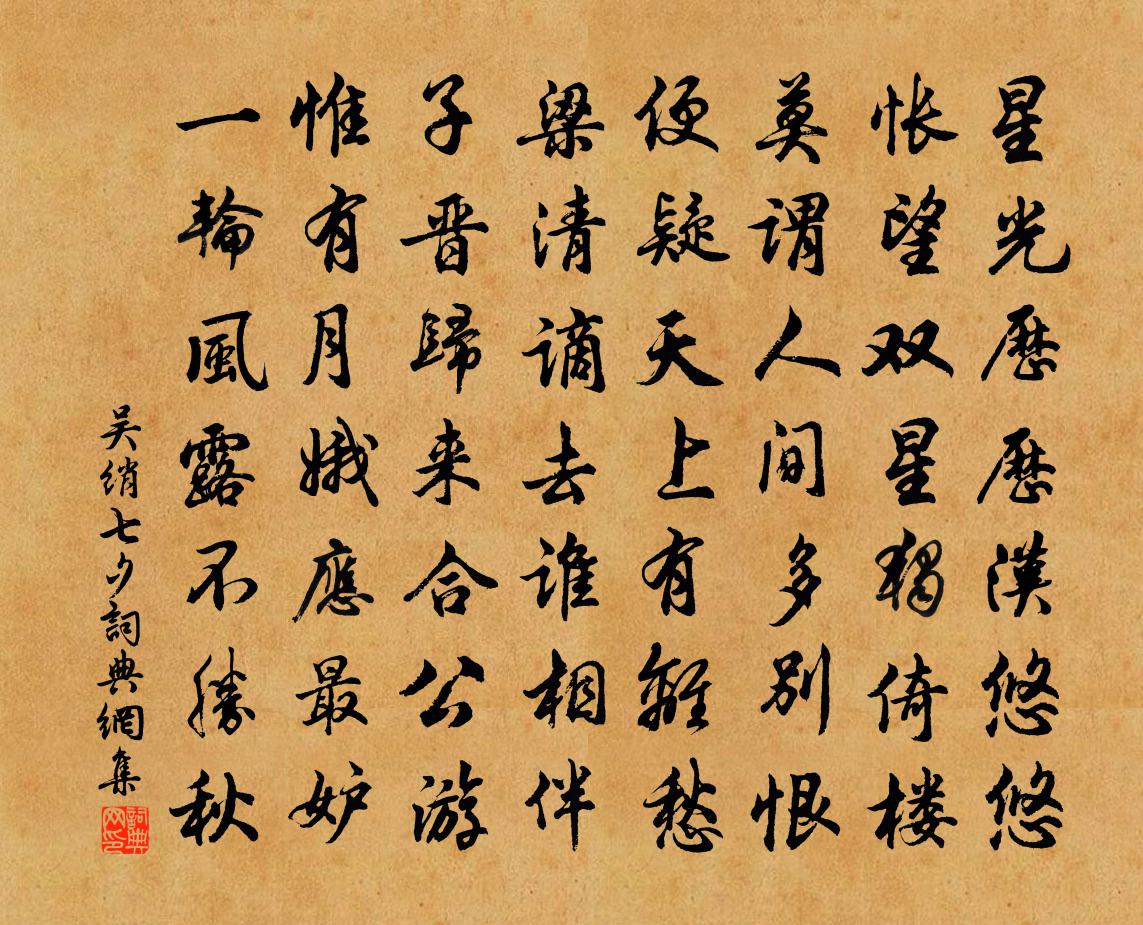 星光歷歷漢悠悠
怅望双星獨倚楼
莫謂人间多别恨
便疑天上有離愁
梁清谪去谁相伴
子晋歸来合公游
惟有月娥應最妒
一輪風露不勝秋
吴绡七夕詞典網集
詞典网印